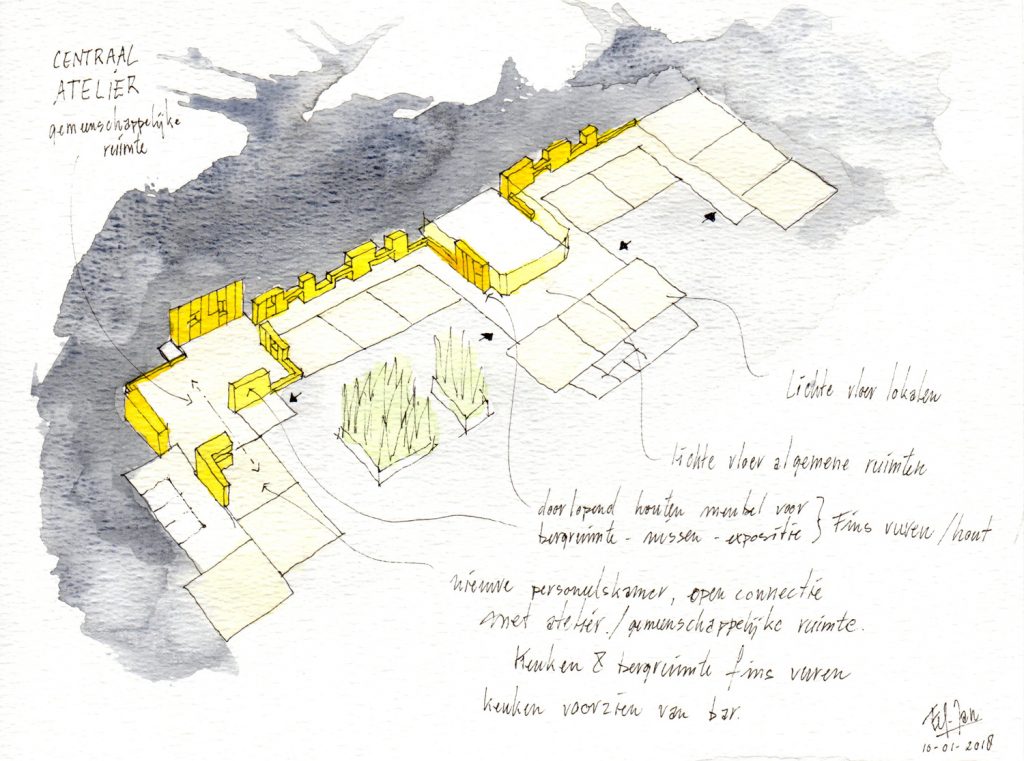 CENTRAAL
ATELIER
gemeenschappelijke
ruimte
Lichte vloer lokalen
lichte vloer algemene ruimten
doorlopend houten meubel voor
bergruimte - nissen - expositie } Fins vuren / hout
nieuwe personeelskamer, open connectie
met atelier / gemeenschappelijke ruimte.
Keuken & bergruimte fins vuren
keuken voorzien van bar.
10-01-2018